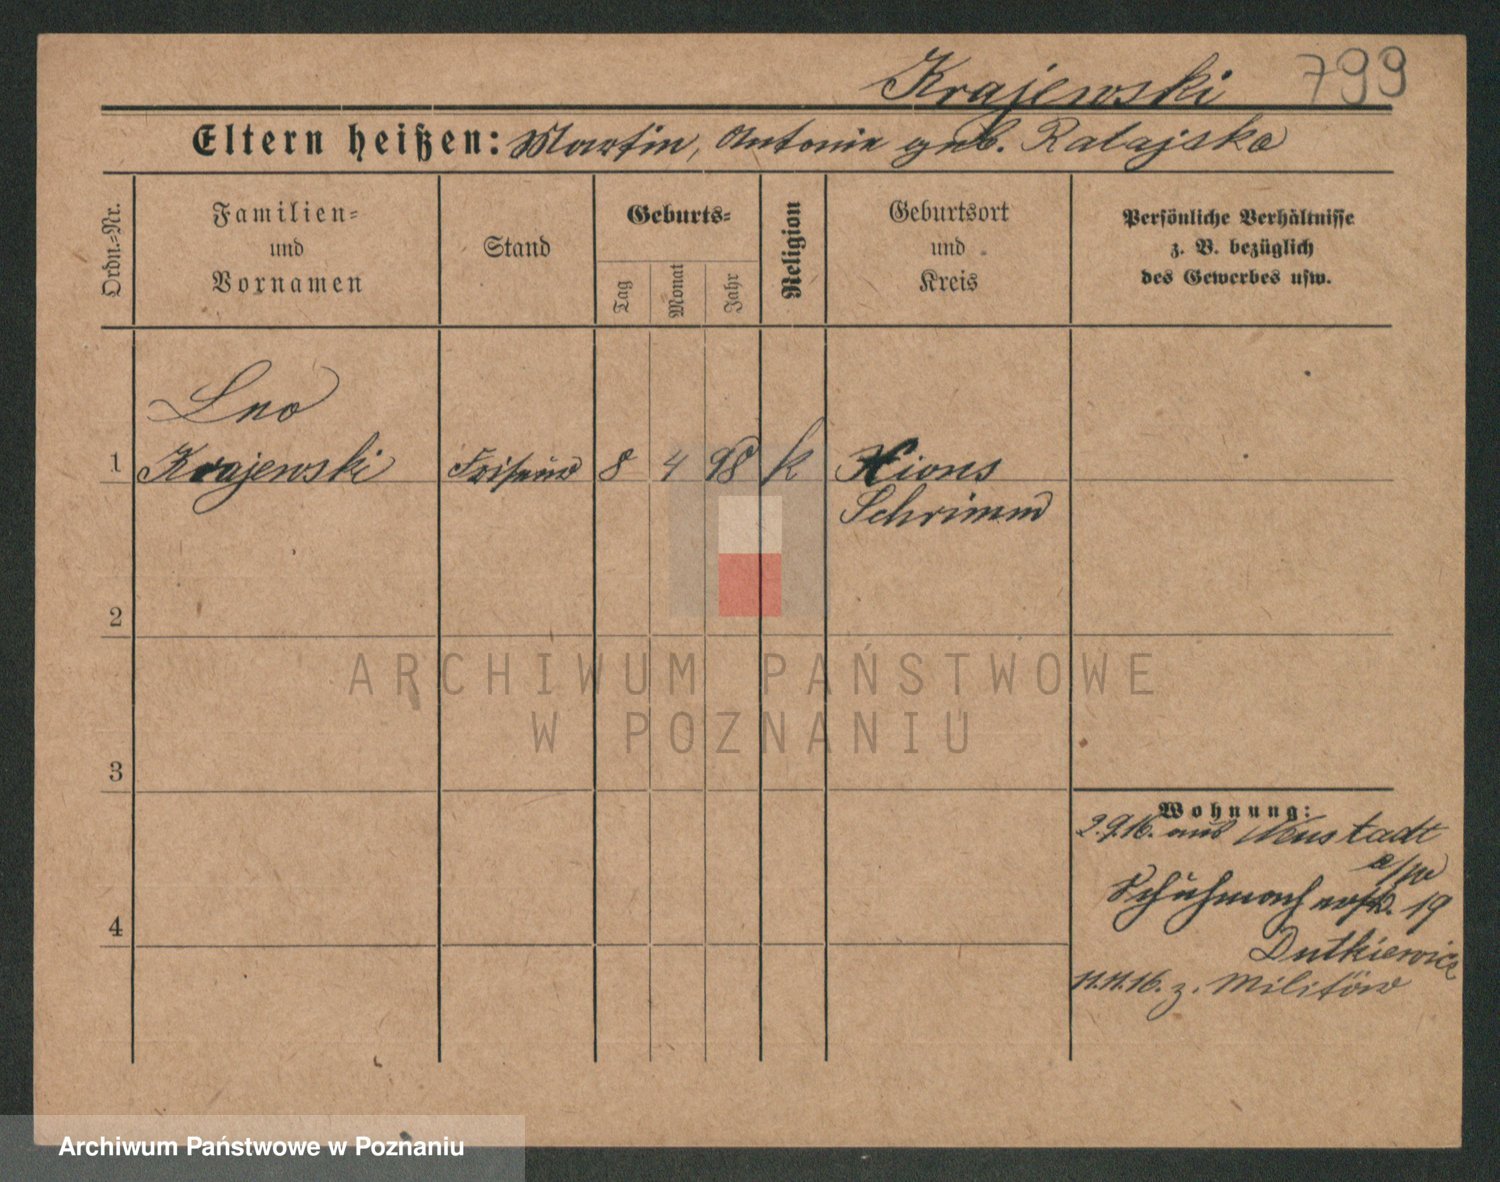 Krajewski 799
Eltern heißen: Martin, Antonie geb. Ratajska
Ordn.=Nr.
Familien=
und
Vornamen
Stand
Geburts=
Tag
Monat
Jahr
Religion
Geburtsort
und
Kreis
Persönliche Verhältnisse
z. B. bezüglich
des Gewerbes usw.
Leo
1 Krajewski Friseur 8 4 98 k Xions
Schrimm
2
ARCHIWUM PAŃSTWOWE
W POZNANIU
3
Wohnung:
2.9.16. aus Neustadt
Schuhmacherstr. 19
Dutkiewicz
11.11.16. z. Militär
4
Archiwum Państwowe w Poznaniu